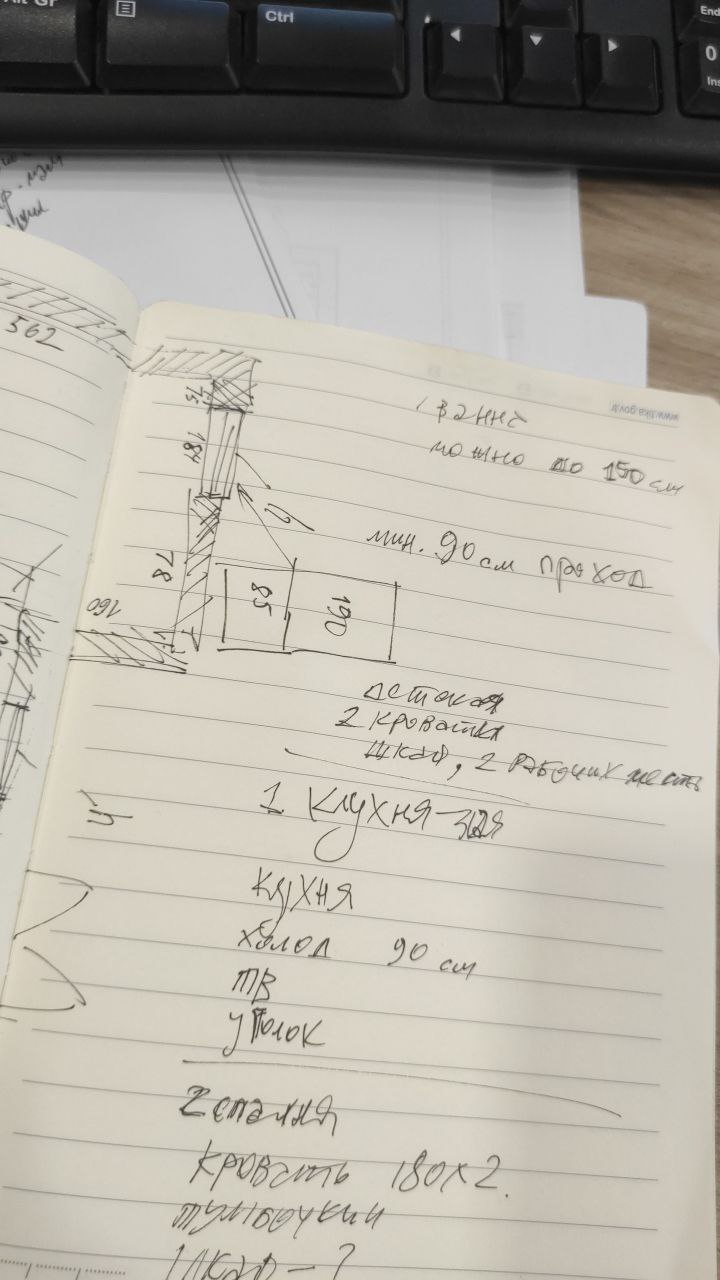 Alt Gr
Ctrl
End
0
Ins
562
75
184
78
160
85
190
ванна
можно до 150 см
www.tika.gov.tr
мин. 90 см проход
детская
2 кроватки
шкаф, 2 рабочих места
1 кухня-
кухня
холод 90 см
ТВ
уголок
2 спалня
кровать 180х2.
тумбочки
шкаф - ?